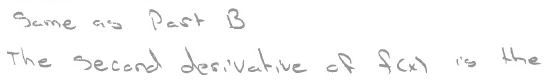 Same as Part B
The second derivative of f(x) is the